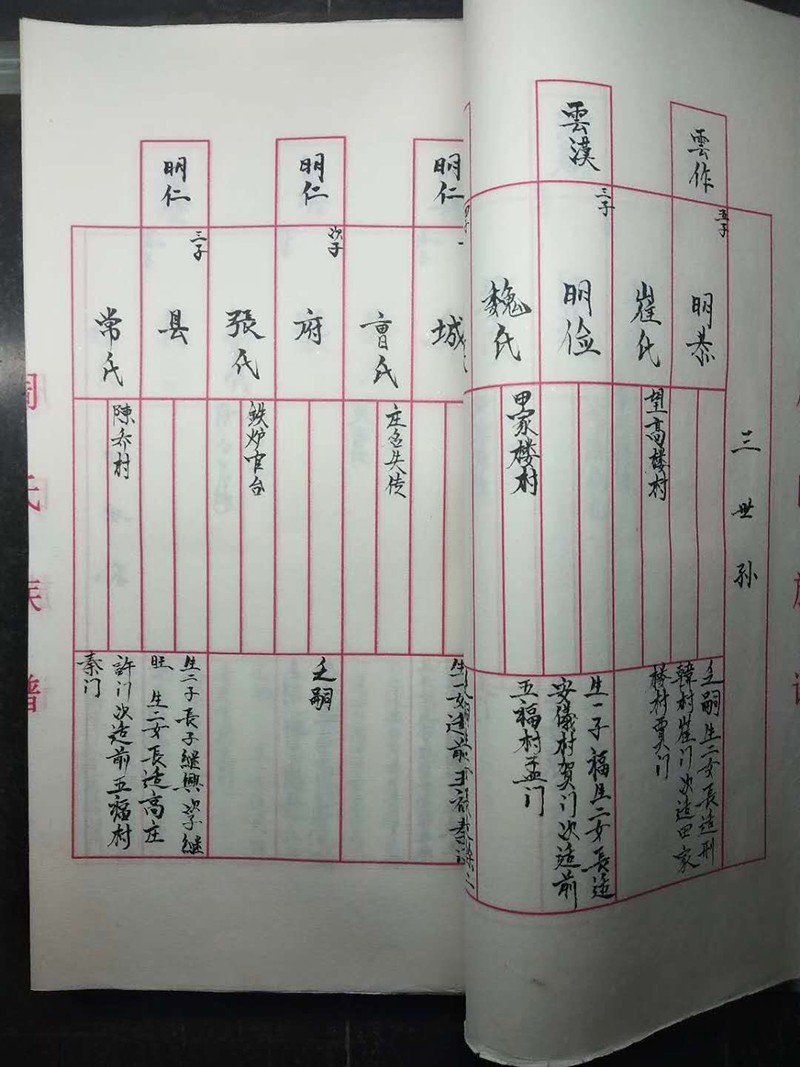 三世孙
雲作
五子
明恭
崔氏
望高楼村
乏嗣 生二女 長适刑
韓村崔门 次适田家
楼村贾门
雲漢
三子
明俭
魏氏
田家楼村
生一子 福 生二女 長适
安儀村贺门 次适前
五福村孟门
明仁
城
曹氏
庄名失传
明仁
次子
府
張氏
铁炉官台
乏嗣
明仁
三子
县
常氏
陳乔村
生二子 長子継興 次子継
旺 生二女 長适高庄
許门 次适前五福村
秦门
周氏族譜